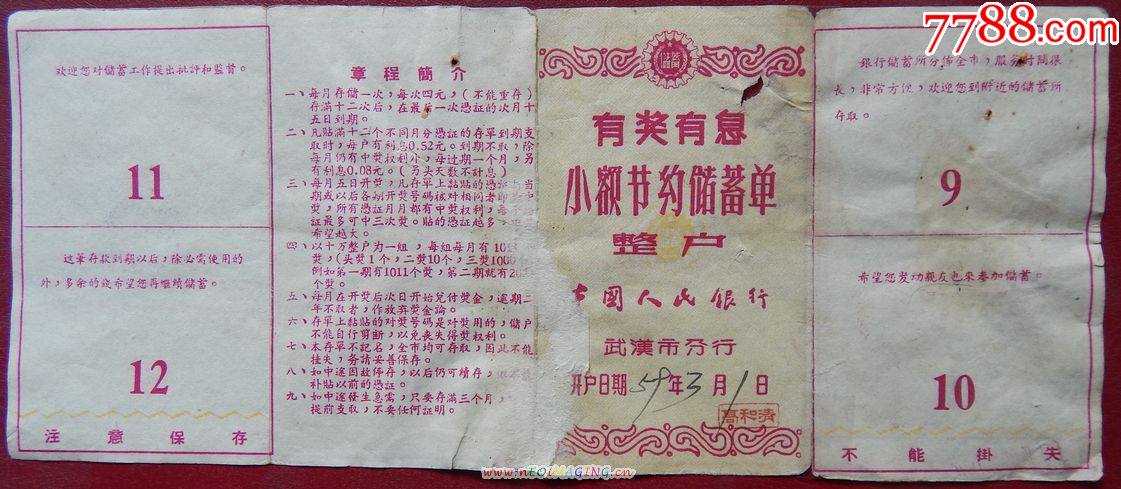 欢迎您对储蓄工作提出批評和监督。
11
这筆存款到期以后，除必需使用的
外，多余的錢希望您再繼續储蓄。
12
注意保存
章程簡介
一、每月存储一次，每次四元，（不能重存）
存滿十二次后，在最后一次憑証的次月十
五日到期。
二、凡貼滿十二个不同月分憑証的存單到期支
取时，每户有利息0.52元。到期不取，除
每月仍有中奬权利外，每过期一个月，另
有利息0.08元。（另头天数不計息）
三、每月五日开奬，凡存單上黏貼的憑証与当
期或以后各期开奬号码核对相同者即
奬，所有憑証月月都有中奬权利，每
証最多可中三次奬。貼的憑証越多，
希望越大。
四、以十万整户为一组，每组每月有1011
奬，（头奬1个，二奬10个，三奬1000个
例如第一期有1011个奬，第二期就有202
五、每月在开奬后次日开始兑付奬金，逾期二
年不取者，作放弃奬金論。
六、存單上黏貼的对奬号碼是对奬用的，储户
不能自行剪断，以免丧失得奬权利。
七、本存單不記名，全市均可存取，因此不能
挂失，务請妥善保存。
八、如中途因故停存，以后仍可續存，但不能
补貼以前的憑証。
九、如中途發生急需，只要存滿三个月，
提前支取，不要任何証明。
有奖有息
小额节约储蓄单
整户
国人民银行
武漢市分行
开户日期59年3月1日
高和清
銀行储蓄所分佈全市，服务时間很
長，非常方便，欢迎您到附近的储蓄所
存取。
9
希望您发动親友也来参加储蓄。
10
不能掛失
7788.com
www.nEOiMAGING.cn